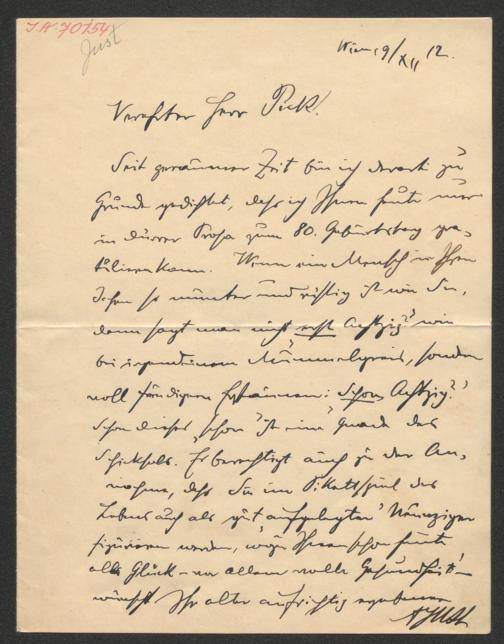 I.N. 70154
Just
Wien, 9/XII 12.
Verehrter Herr Pick!
Seit geraumer Zeit bin ich derart zu
Grunde gedichtet, daß ich Ihnen heute nur
in dürrer Prosa zum 80. Geburtstag gra-
tulieren kann. Wenn ein Mensch in Ihren
Jahren so munter und rüstig ist wie Sie,
dann sagt man nicht "erst Achtzig?" wie
bei irgendeinem Mummelgreis, sondern
voll freudigem Erstaunen: "Schon Achtzig?"
Schon dieses "schon" ist eine Gnade des
Schicksals. Es berechtigt auch zu der An-
nahme, daß Sie im Pikettspiel des
Lebens auch als "gut aufgelegter" Neunziger
figurieren werden, wozu Ihnen schon heute
alles Glück – vor allem volle Gesundheit! –
wünscht Ihr alter aufrichtig ergebener
A Just